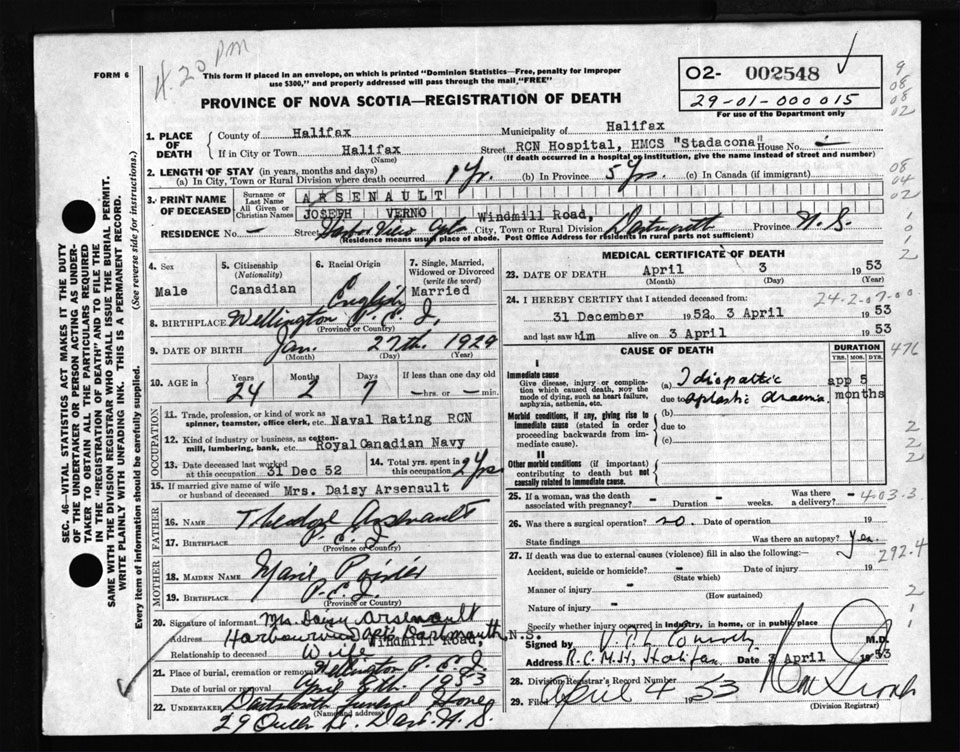 4.20 PM
FORM 6
This form if placed in an envelope, on which is printed "Dominion Statistics—Free, penalty for improper
use $300," and properly addressed will pass through the mail, "FREE"
O2- 002548
29-01-000015
For use of the Department only
PROVINCE OF NOVA SCOTIA—REGISTRATION OF DEATH
1. PLACE OF DEATH
County of Halifax Municipality of Halifax
If in City or Town Halifax (Name) Street RCN Hospital, HMCS "Stadacona" House No. -
(If death occurred in a hospital or institution, give the name instead of street and number)
2. LENGTH OF STAY (in years, months and days)
(a) In City, Town or Rural Division where death occurred 1 Yr. (b) In Province 5 Yrs. (c) In Canada (if immigrant)
3. PRINT NAME OF DECEASED
Surname or Last Name ARSENAULT
All Given or Christian Names JOSEPH VERNO
Windmill Road,
RESIDENCE No. - Street Harbor View Apts City, Town or Rural Division Dartmouth Province N. S.
(Residence means usual place of abode. Post Office Address for residents in rural parts not sufficient)
4. Sex Male
5. Citizenship (Nationality) Canadian
6. Racial Origin English
7. Single, Married, Widowed or Divorced (write the word) Married
8. BIRTHPLACE Wellington P. E. I.
(Province or Country)
9. DATE OF BIRTH Jan. 27th. 1929
(Month) (Day) (Year)
10. AGE in Years 24 Months 2 Days 7 If less than one day old —hrs. or —min.
OCCUPATION
11. Trade, profession, or kind of work as spinner, teamster, office clerk, etc. Naval Rating RCN
12. Kind of industry or business, as cotton-mill, lumbering, bank, etc. Royal Canadian Navy
13. Date deceased last worked at this occupation 31 Dec 52
14. Total yrs. spent in this occupation 2 Yrs
15. If married give name of wife or husband of deceased Mrs. Daisy Arsenault
FATHER
16. NAME Arsenault
17. BIRTHPLACE P. E. I.
(Province or Country)
MOTHER
18. MAIDEN NAME Marie Poirier
19. BIRTHPLACE P. E. I.
(Province or Country)
20. Signature of informant Mrs. Daisy Arsenault
Address Harbourview Apts Dartmouth, N.S.
Windmill Road,
Relationship to deceased Wife
21. Place of burial, cremation or removal Wellington P. E. I.
Date of burial or removal April 8th. 1953
22. UNDERTAKER Funeral Home
(Name and address)
29 Queen St. Dart. N. S.
MEDICAL CERTIFICATE OF DEATH
23. DATE OF DEATH April 3 1953
(Month) (Day) (Year)
24. I HEREBY CERTIFY that I attended deceased from:
24-2-07-00
31 December 1952 to 3 April 1953
and last saw him alive on 3 April 1953
CAUSE OF DEATH
DURATION
YRS. MOS. DYS.
476
I
Immediate cause
Give disease, injury or complication which caused death, NOT the mode of dying, such as heart failure, asphyxia, asthenia, etc.
(a) Idiopathic
due to aplastic anaemia
app 5 months
Morbid conditions, if any, giving rise to immediate cause (stated in order proceeding backwards from immediate cause).
(b)
due to
(c)
II
Other morbid conditions (if important) contributing to death but not causally related to immediate cause.
25. If a woman, was the death associated with pregnancy? - Duration - weeks. Was there a delivery? -
4-03-3
26. Was there a surgical operation? no. Date of operation 19
State findings Was there an autopsy? Yes.
27. If death was due to external causes (violence) fill in also the following:—
292.4
Accident, suicide or homicide? - Date of injury 19
(State which)
Manner of injury -
(How sustained)
Nature of injury -
Specify whether injury occurred in industry, in home, or in public place
Signed by M.D.
Address R.C.N.H., Halifax. Date 3 April 1953
28. Division Registrar's Record Number
29. Filed April 4 1953
(Division Registrar)
SEC. 46—VITAL STATISTICS ACT MAKES IT THE DUTY
OF THE UNDERTAKER OR PERSON ACTING AS UNDER-
TAKER TO OBTAIN ALL THE PARTICULARS REQUIRED
IN THE "REGISTRATION OF DEATH" AND TO FILE THE
SAME WITH THE DIVISION REGISTRAR WHO SHALL ISSUE THE BURIAL PERMIT.
WRITE PLAINLY WITH UNFADING INK. THIS IS A PERMANENT RECORD.
Every item of information should be carefully supplied. (See reverse side for instructions.)